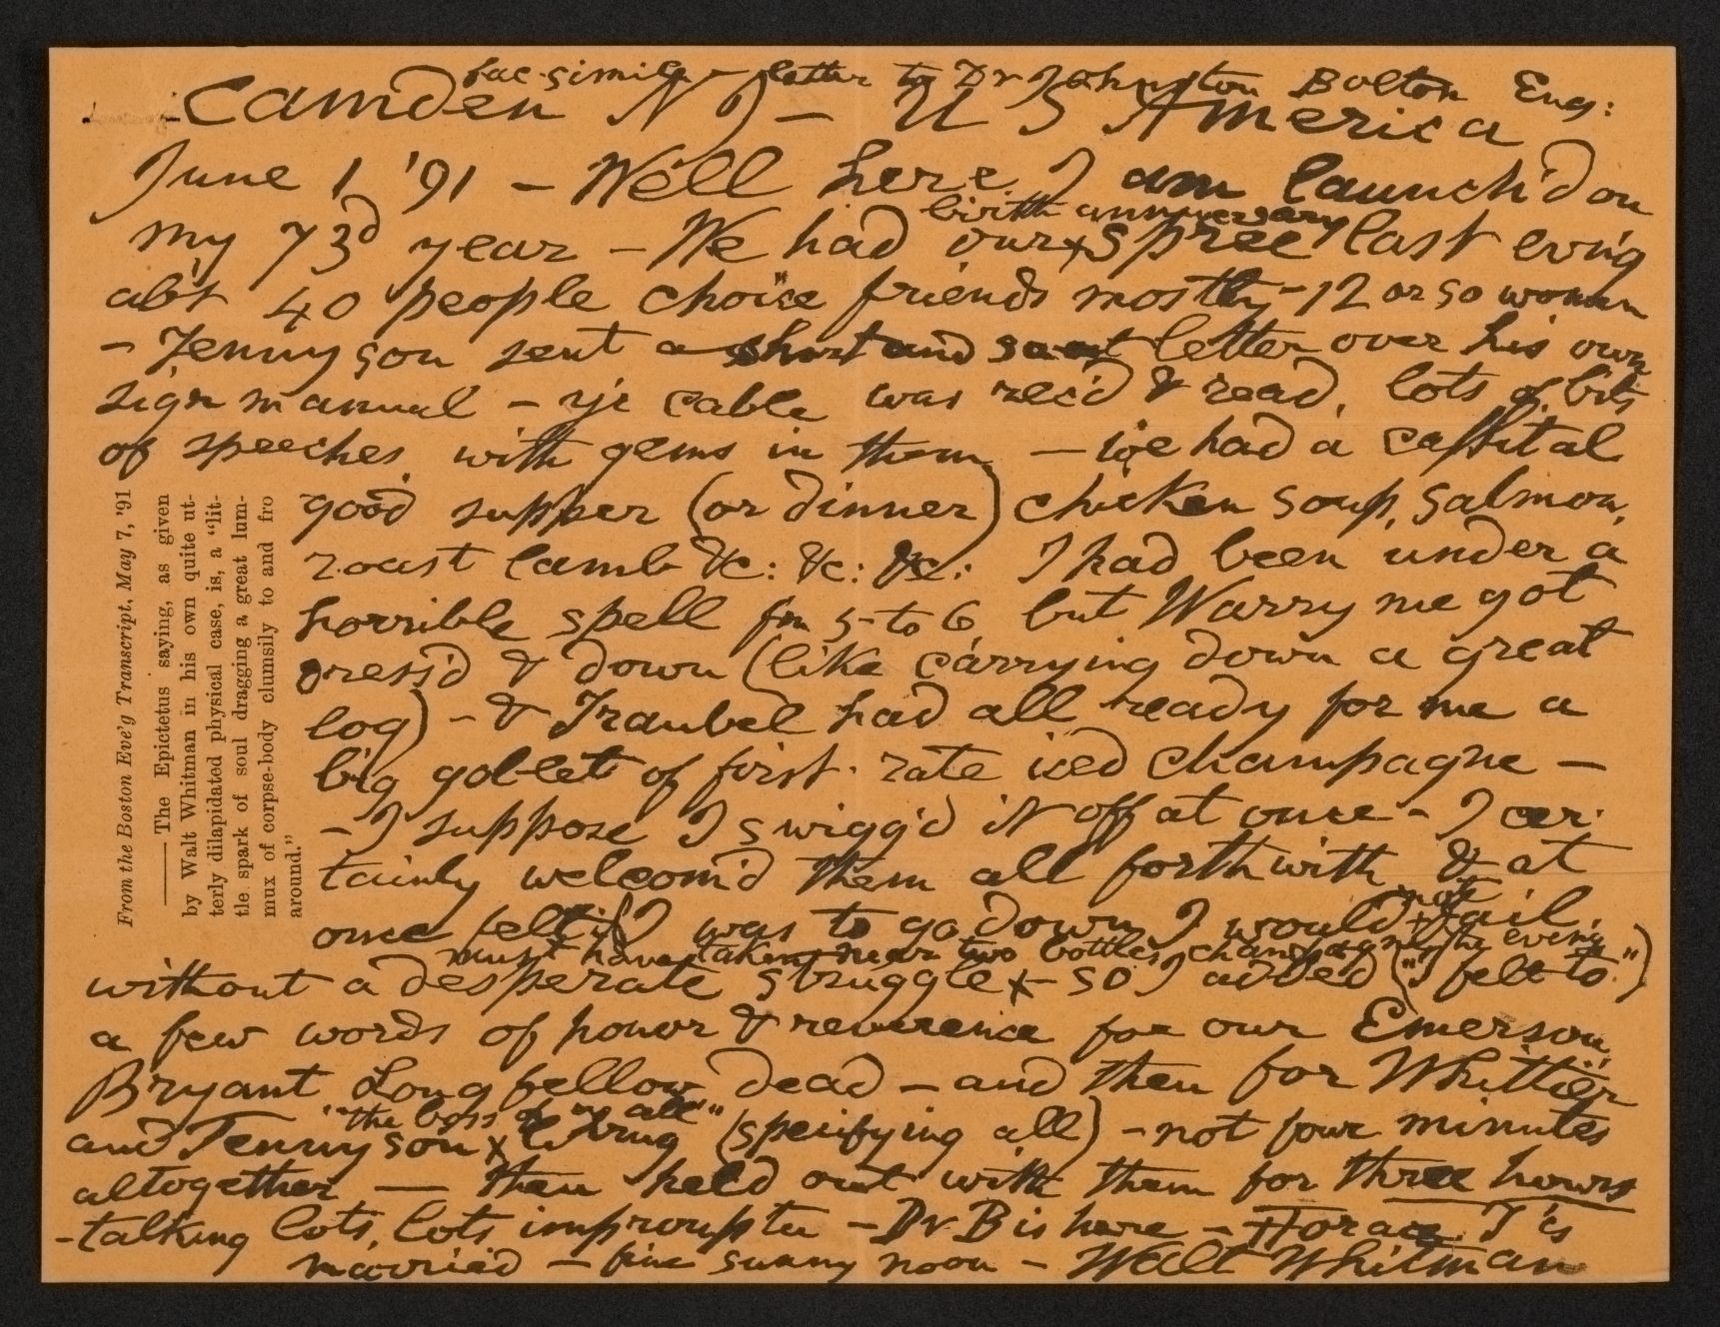 fac-simile letter to Dr Johnston Bolton Eng:
Camden N J – U S America
June 1 '91 – Well here I am launch'd on
birth anniversary
my 73d year – We had our spree last ev'ng
ab't 40 people choice friends mostly – 12 or so women
– Tennyson sent a short and sweet letter over his own
sign manual – y'r cable was rec'd & read, lots of bits
of speeches, with gems in them – we had a capital
good supper (or dinner) chicken soup, salmon,
roast lamb &c: &c: &c: I had been under a
horrible spell f'm 5 to 6, but Warry me got
dress'd & down (like carrying down a great
log) – & Traubel had all ready for me a
big goblet of first-rate iced champagne –
– I suppose I swigg'd it off at once – I cer-
tainly welcom'd them all forthwith & at
not
once felt if I was to go down I would fail,
must have taken near two bottles champagne the even'g
without a desperate struggle – so I added ("I felt to")
a few words of honor & reverence for our Emerson,
Bryant Longfellow dead – and then for Whittier
"the boss of us all"
and Tennyson living (specifying all) – not four minutes
altogether — then held out with them for three hours
– talking lots, lots impromptu – Dr B is here – Horace T's
married – fine sunny noon – Walt Whitman
From the Boston Eve'g Transcript, May 7, '91
—— The Epictetus saying, as given
by Walt Whitman in his own quite ut-
terly dilapidated physical case, is, a "lit-
tle spark of soul dragging a great lum-
mux of corpse-body clumsily to and fro
around."